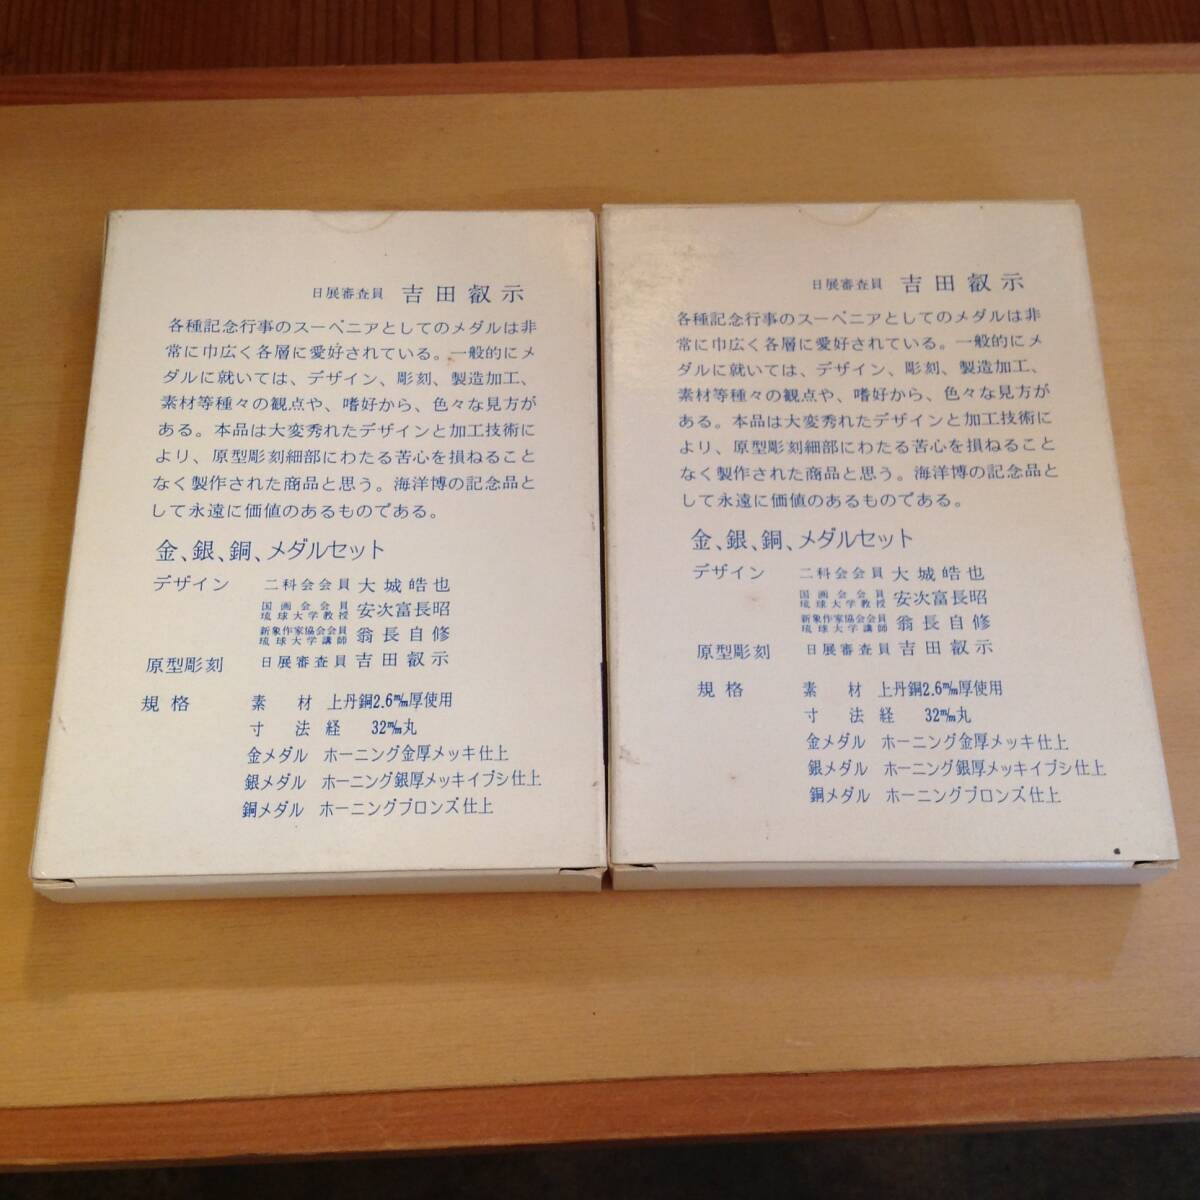 日展審査員 吉田叡示
各種記念行事のスーベニアとしてのメダルは非
常に巾広く各層に愛好されている。一般的にメ
ダルに就いては、デザイン、彫刻、製造加工、
素材等種々の観点や、嗜好から、色々な見方が
ある。本品は大変秀れたデザインと加工技術に
より、原型彫刻細部にわたる苦心を損ねること
なく製作された商品と思う。海洋博の記念品と
して永遠に価値のあるものである。
金、銀、銅、メダルセット
デザイン 二科会会員 大城皓也
国画会会員
琉球大学教授 安次富長昭
新象作家協会会員
琉球大学講師 翁長自修
原型彫刻 日展審査員 吉田叡示
規格 素材 上丹銅2.6m/m厚使用
寸法経 32m/m丸
金メダル ホーニング金厚メッキ仕上
銀メダル ホーニング銀厚メッキイブシ仕上
銅メダル ホーニングブロンズ仕上
日展審査員 吉田叡示
各種記念行事のスーベニアとしてのメダルは非
常に巾広く各層に愛好されている。一般的にメ
ダルに就いては、デザイン、彫刻、製造加工、
素材等種々の観点や、嗜好から、色々な見方が
ある。本品は大変秀れたデザインと加工技術に
より、原型彫刻細部にわたる苦心を損ねること
なく製作された商品と思う。海洋博の記念品と
して永遠に価値のあるものである。
金、銀、銅、メダルセット
デザイン 二科会会員 大城皓也
国画会会員
琉球大学教授 安次富長昭
新象作家協会会員
琉球大学講師 翁長自修
原型彫刻 日展審査員 吉田叡示
規格 素材 上丹銅2.6m/m厚使用
寸法経 32m/m丸
金メダル ホーニング金厚メッキ仕上
銀メダル ホーニング銀厚メッキイブシ仕上
銅メダル ホーニングブロンズ仕上